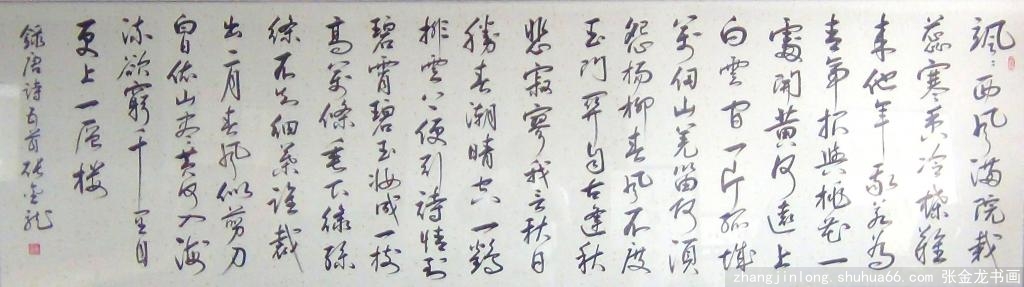 飒飒西风满院栽
蕊寒香冷蝶难
来他年我若为
青帝报与桃花一
處開黄河远上
白雲间一片孤城
萬仞山羌笛何须
怨杨柳春风不度
玉门关自古逢秋
悲寂寥我言秋日
胜春潮晴空一鹤
排雲上便引诗情到
碧霄碧玉妆成一树
高萬條垂下绿丝
绦不知细叶谁裁
出二月春风似剪刀
白日依山尽黄河入海
流欲窮千里目
更上一层楼
錄唐诗五首张金龙
zhangjinlong.shuhua66.com 张金龙书画